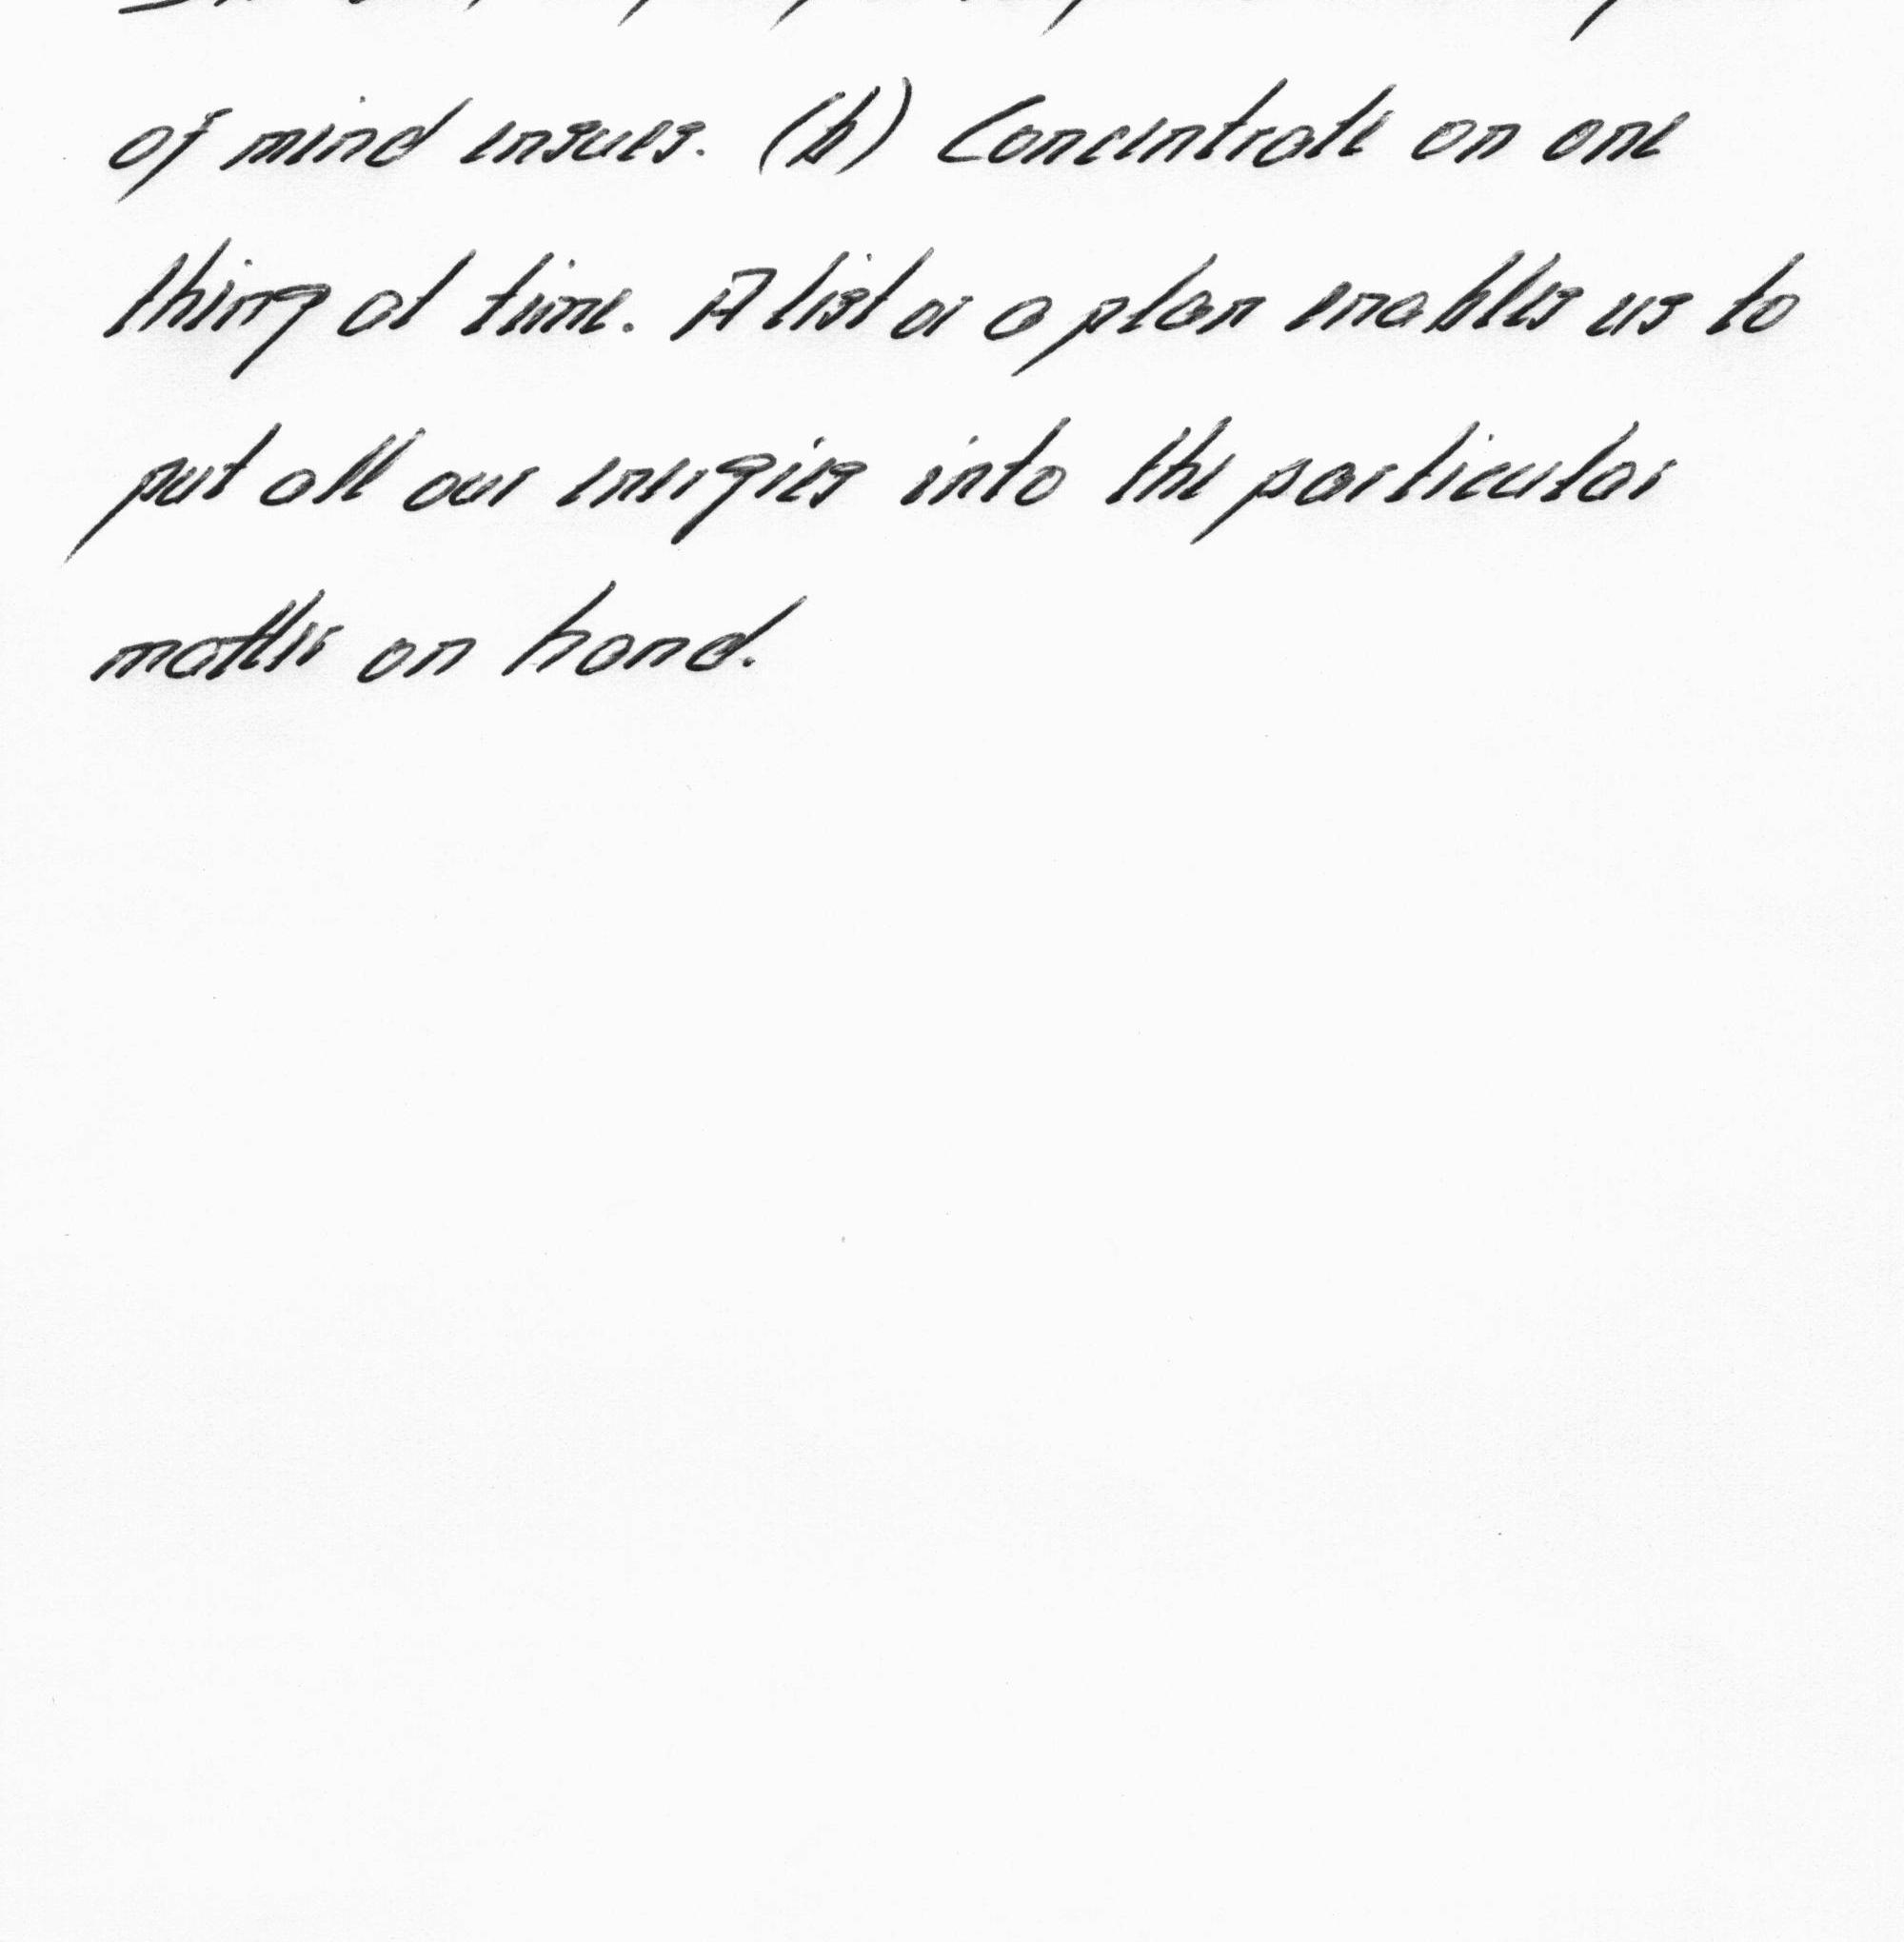 of mind ensues. (b) Concentrate on one
thing at time. A list or a plan enables us to
put all our energies into the particular
matter on hand.